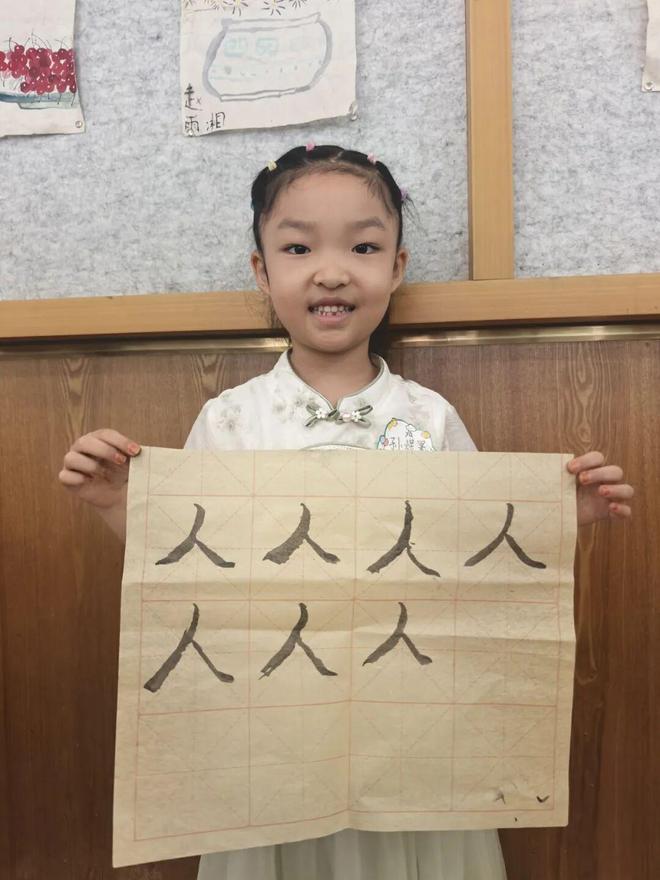 赵
雨湘
人人人人
人人人